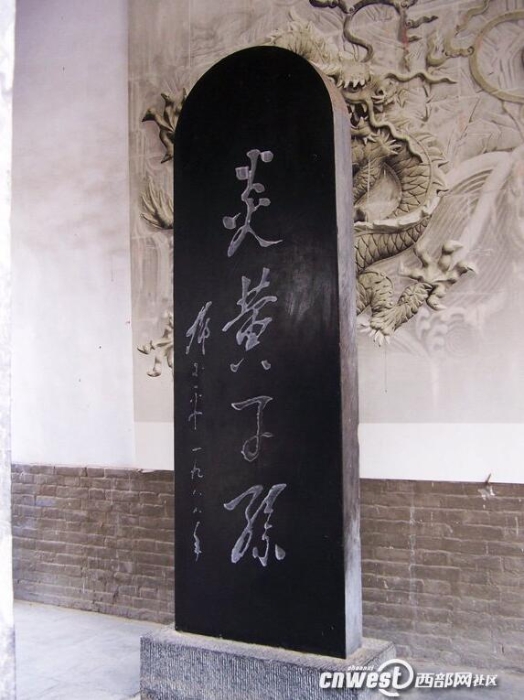 炎黄子孫
鄧小平 一九八八年
shaanxi
cnwest 西部网社区